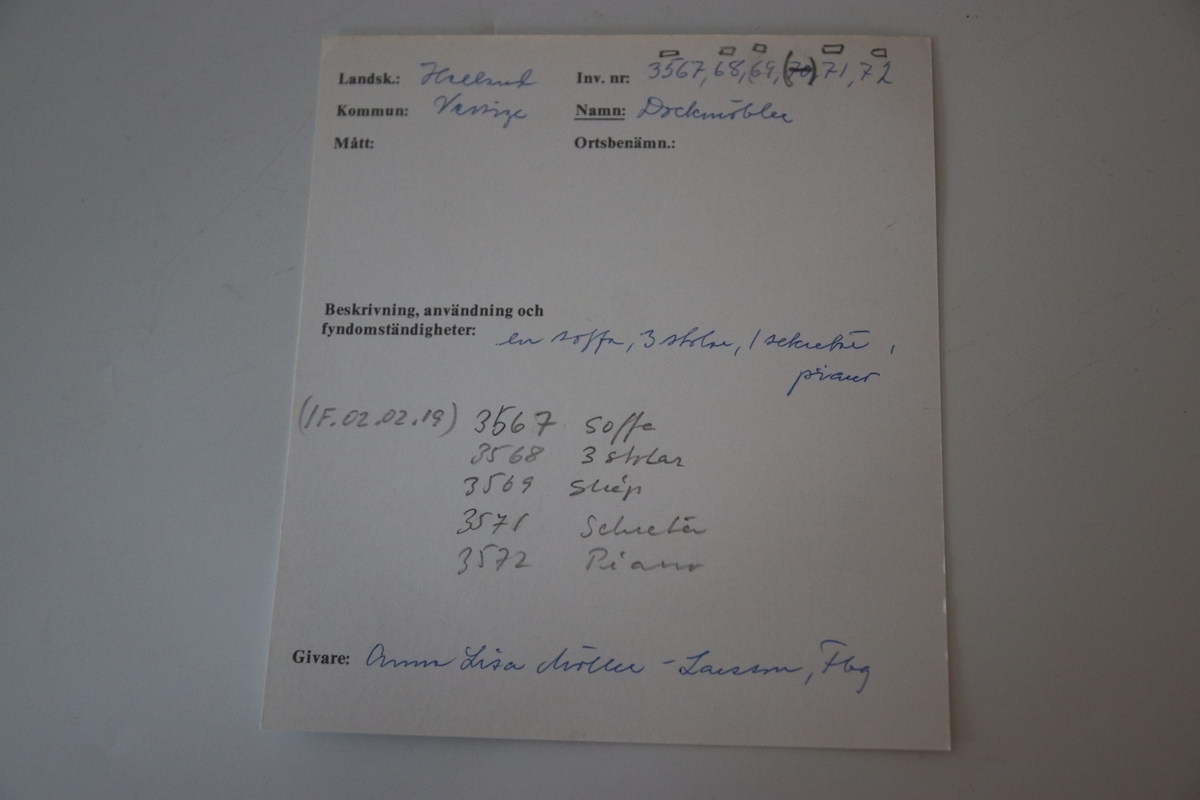 Landsk.: Halland Inv. nr: 3567, 68, 69, (70) 71, 72
Kommun: Vessige Namn: Dockmöbler
Mått: Ortsbenämn.:
Beskrivning, användning och
fyndomständigheter: en soffa, 3 stolar, 1 sekretär,
piano
(IF.02.02.19) 3567 Soffa
3568 3 stolar
3569 Skåp
3571 Sekretär
3572 Piano
Givare: Anna Lisa Möller-Larsson, Fbg